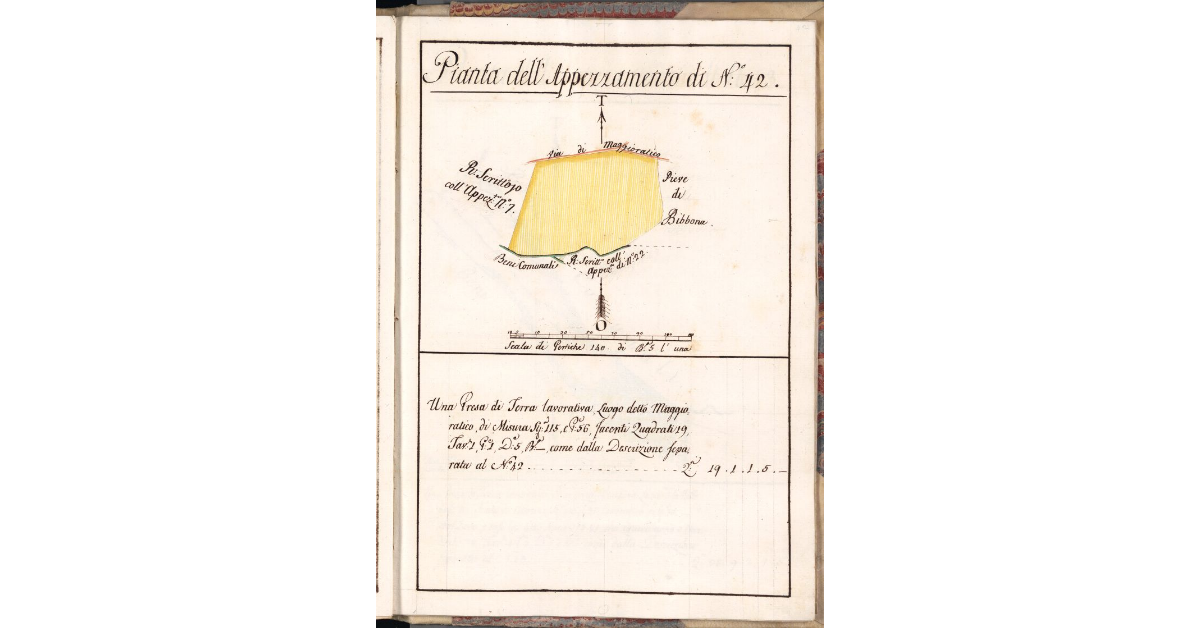 Pianta dell'Appezzamento di N.º 42.
T
Via di Maggioratico
R: Scrittojo
coll'Appez.to N.º 7.
Pieve
di
Bibbona.
Beni Comunali
R: Scritt.º coll'
Appez.º di N.º 22.
O
Scala di Pertiche 140 di B.a 5 l'una
Una Presa di Terra lavorativa, Luogo detto Maggio,
ratico, di Misura 115, e 56, facenti Quadrati 19,
Tav.e 1, P.e 1, D.a 5, B.a —, come dalla Descrizione sepa,
rata al N.º 42 . . . . . . . . . . . . . . . . Q.ti 19 . 1 . 1 . 5 . —